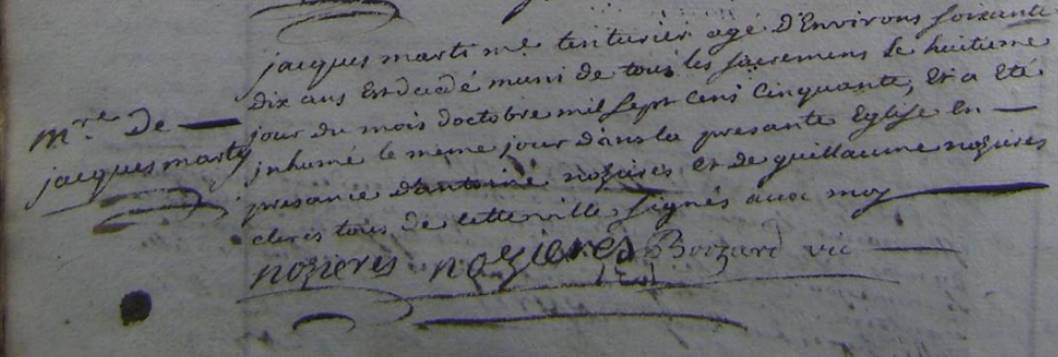 jacques marti me tinturier agé D'Environs soixante
dix ans Est dcdé muni de tous les sacremens Le huitieme
jour du mois doctobre mil sept cens cinquante, Et a Eté
mre De
jacques marty
jnhumé le meme jour dans la presante Eglise En
presance d'antoine nozieres et de guillaume nozieres
clercs tous de cette ville signés avec moy
nozieres nozieres Boizard vic